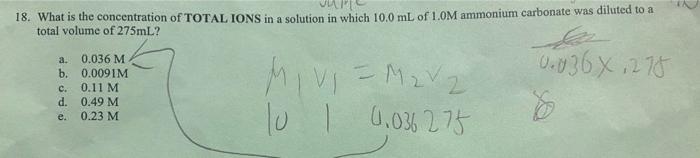 18. What is the concentration of TOTAL IONS in a solution in which 10.0 mL of 1.0M ammonium carbonate was diluted to a
total volume of 275mL?
a. 0.036 M
b. 0.0091M
c. 0.11 M
d. 0.49 M
e. 0.23 M
M1V1 = M2V2
10 1 0.036 275
0.036 x .275